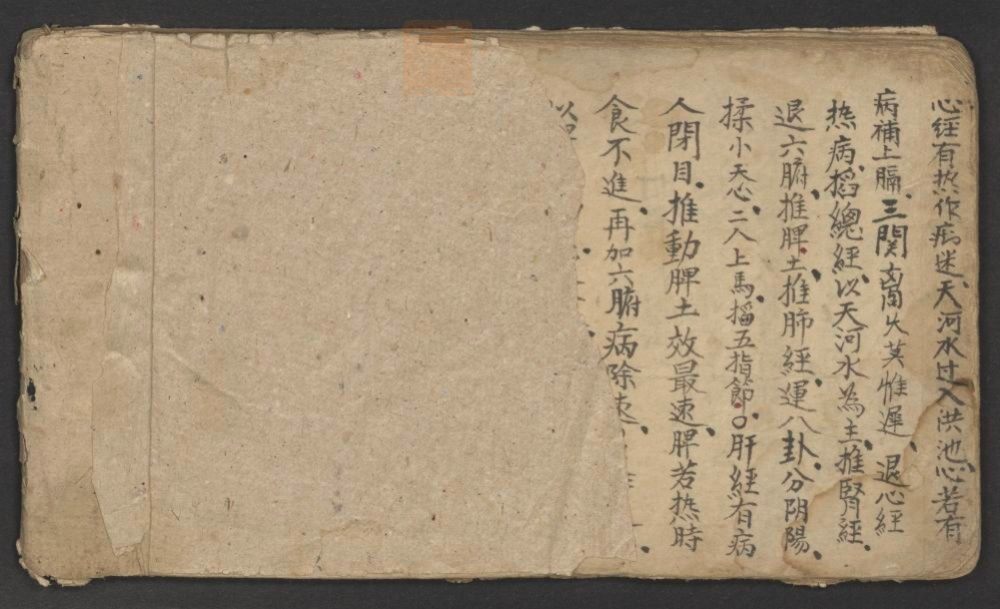 心經有热作痴迷、天河水过入洪池、心若有
病補上膈、三関离火莫惟遲、退心經
热病、搯總經、以天河水為主、推腎經、
退六腑、推脾土、推肺經、運八卦、分阴陽、
揉小天心、二人上馬、搯五指節、○肝經有病
人閉目、推動脾土效最速、脾若热時
食不進、再加六腑病除速、